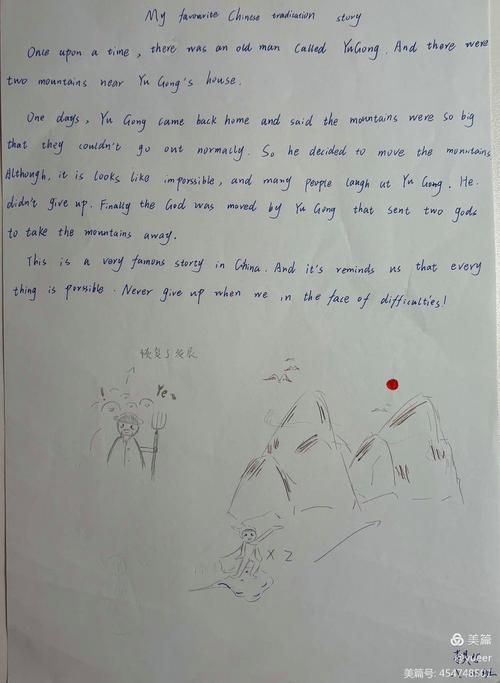 My favourite Chinese tradication story
Once upon a time, there was an old man called YuGong. And there were
two mountains near Yu Gong's house.
One days, Yu Gong came back home and said the mountains were so big
that they couldn't go out normally. So he decided to move the mountains
Although, it is looks like imporssible, and many people laugh at Yu Gong. He
didn't give up. Finally the God was moved by Yu Gong that sent two gods
to take the mountains away.
This is a very famous storty in China. And it's reminds us that every
thing is porssible. Never give up when we in the face of difficulties!
恢复与发展
Ye
× 2
美篇
美篇号: